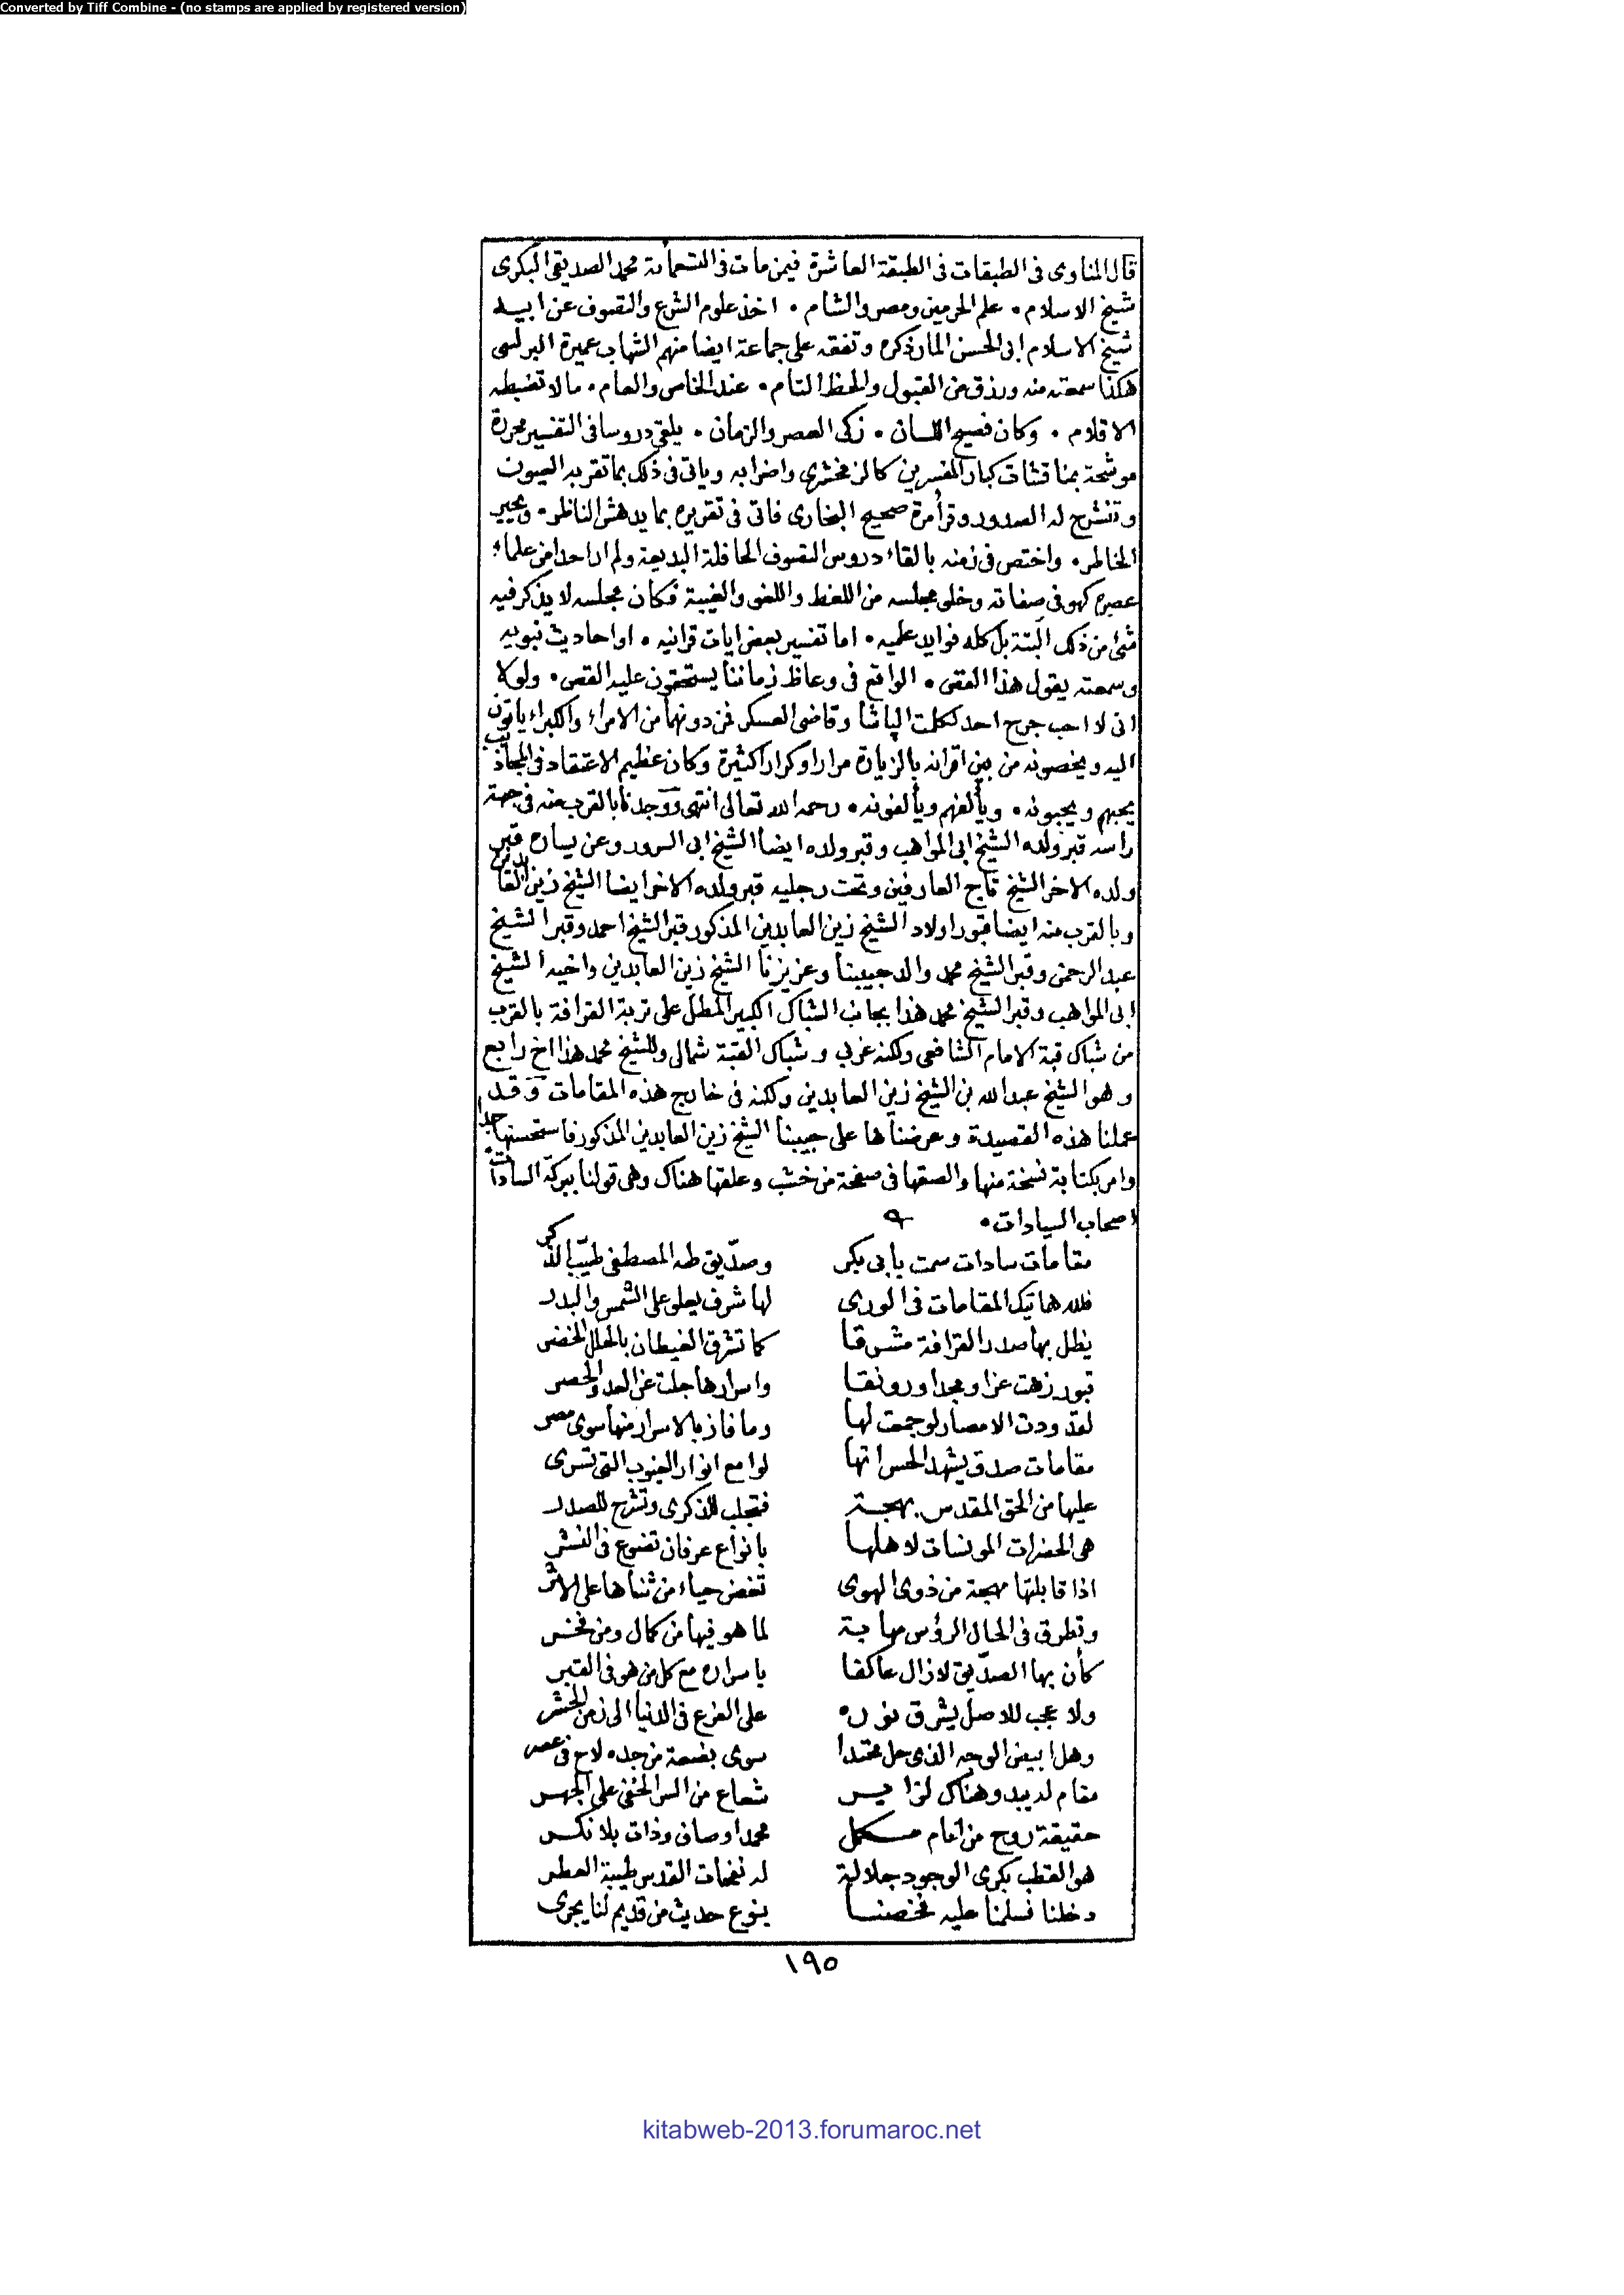 Converted by Tiff Combine - (no stamps are applied by registered version)
قال المناوى فى الطبقات فى الطبقة العاشرة فيمن مات فى التسعمائة محمد الصديقى البكرى
شيخ الاسلام • علم الحرمين ومصر والشام • اخذ علوم الشرع والتصوف عن ابيه
شيخ الاسلام ابى الحسن المار ذكره وتفقه على جماعة ايضا منهم الشهاب عميرة البرلسى
هكذا سمعته منه ورزق من القبول والحظ التام • عند الخاص والعام • ما لا تضبطه
الاقلام • وكان فصيح اللسان • زكى العصر والزمان • يلقى دروسا فى التفسير محررة
موشحة بمناقشات كبار المفسرين كالزمخشرى واضرابه وياتى فى ذلك بما تقر به العيون
وتنشرح له الصدور وقرأ مرة صحيح البخارى فاتى فى تقريره بما يدهش الناظر • ويحير
الخاطر • واختص فى زمنه بالقاء دروس التصوف الحافلة البديعة ولم ار احدا من علماء
عصره كهو فى صفاته وخلو مجلسه من اللغط واللغو والغيبة فكان مجلسه لا يذكر فيه
شئ من ذلك البتة بل كله فوايد علميه • اما تفسير بعض ايات قرانيه • او احاديث نبويه
وسمعته يقول هذا القص • الواقع فى وعاظ زماننا يستحقون عليه القص • ولولا
انى لا احب جرح احد لكلمت الباشا وقاضى العسكر فمن دونهما من الامراء والكبراء ياتون
اليه ويخصونه من بين اقرانه بالزيارة مرارا وكرارا كثيرة وكان عظيم الاعتقاد فى المجاذيب
يحبهم ويحبونه • ويألفهم ويألفونه • رحمه الله تعالى انتهى ووجدنا بالقرب منه فى جهة
راسه قبر ولده الشيخ ابى المواهب وقبر ولده ايضا الشيخ ابى السرور وعن يساره قبر
ولده الاخر الشيخ تاج العارفين وتحت رجليه قبر ولده الاخر ايضا الشيخ زين العابدين
وبالقرب منه ايضا قبور اولاد الشيخ زين العابدين المذكور قبر الشيخ احمد وقبر الشيخ
عبد الرحمن وقبر الشيخ محمد والد حبيبنا وعزيزنا الشيخ زين العابدين واخيه الشيخ
ابى المواهب وقبر الشيخ محمد هذا بجانب الشباك الكبير المطل على تربة القرافة بالقرب
من شباك قبة الامام الشافعى ولكنه غربى وشباك القبة شمالى وللشيخ محمد هذا اخ رابع
وهو الشيخ عبد الله بن الشيخ زين العابدين ولكنه فى خارج هذه المقامات وقد
عملنا هذه القصيدة وعرضناها على حبيبنا الشيخ زين العابدين المذكور فاستحسنها جدا
وامر بكتابة نسخة منها والصقها فى صفحة من خشب وعلقها هناك وهى قولنا ببركة السادات
اصحاب السيادات •
مقامات سادات سمت بابى بكر وصدّيق طه المصطفى طيّب الذكر
فلله هاتيك المقامات فى الورى لها شرف يعلو على الشمس والبدر
يظل بها صدر القرافة مشرقا كما تشرق الغيطان بالحلل الخضر
قبور زهت عزا ومجدا ورونقا واسرارها جلت عن العد والحصر
لقد ودت الامصار لو جمعت لها وما فاز بالاسرار منها سوى مصر
مقامات صدق يشهد الحس انها لوامع انوار الغيوب التى تسرى
عليها من الحق المقدس بهجة فتجلب للذكرى وتشرح للصدر
هى الحضرات المونسات لاهلها بانواع عرفان تضوع فى النشر
اذا قابلتها مهجة من ذوى الهوى تغض حياء من ثناها على الاثر
وتطرق فى الحال الرؤس مهابة لما هو فيها من كمال ومن فخر
كأن بها الصدّيق لا زال عاكفا باسراره مع كل من هو فى القبر
ولا عجب للاصل يشرق نوره على الفرع فى الدنيا الى زمن الحشر
وهل ابيض الوجه الذى حل محتدا سوى بضعة من جده لاح فى عصر
مقام لديه يبدو هناك لزاير شعاع من السر الخفى على الجهر
حقيقة روح من امام مكمل محمد اوصاف وذات بلا نكر
هو القطب بكرى الوجود جلالة له نفحات القدس طيبة العطر
دخلنا فسلمنا عليه فخصنا بنوع حديث من قديم لنا يجرى
١٩٥
kitabweb-2013.forumaroc.net